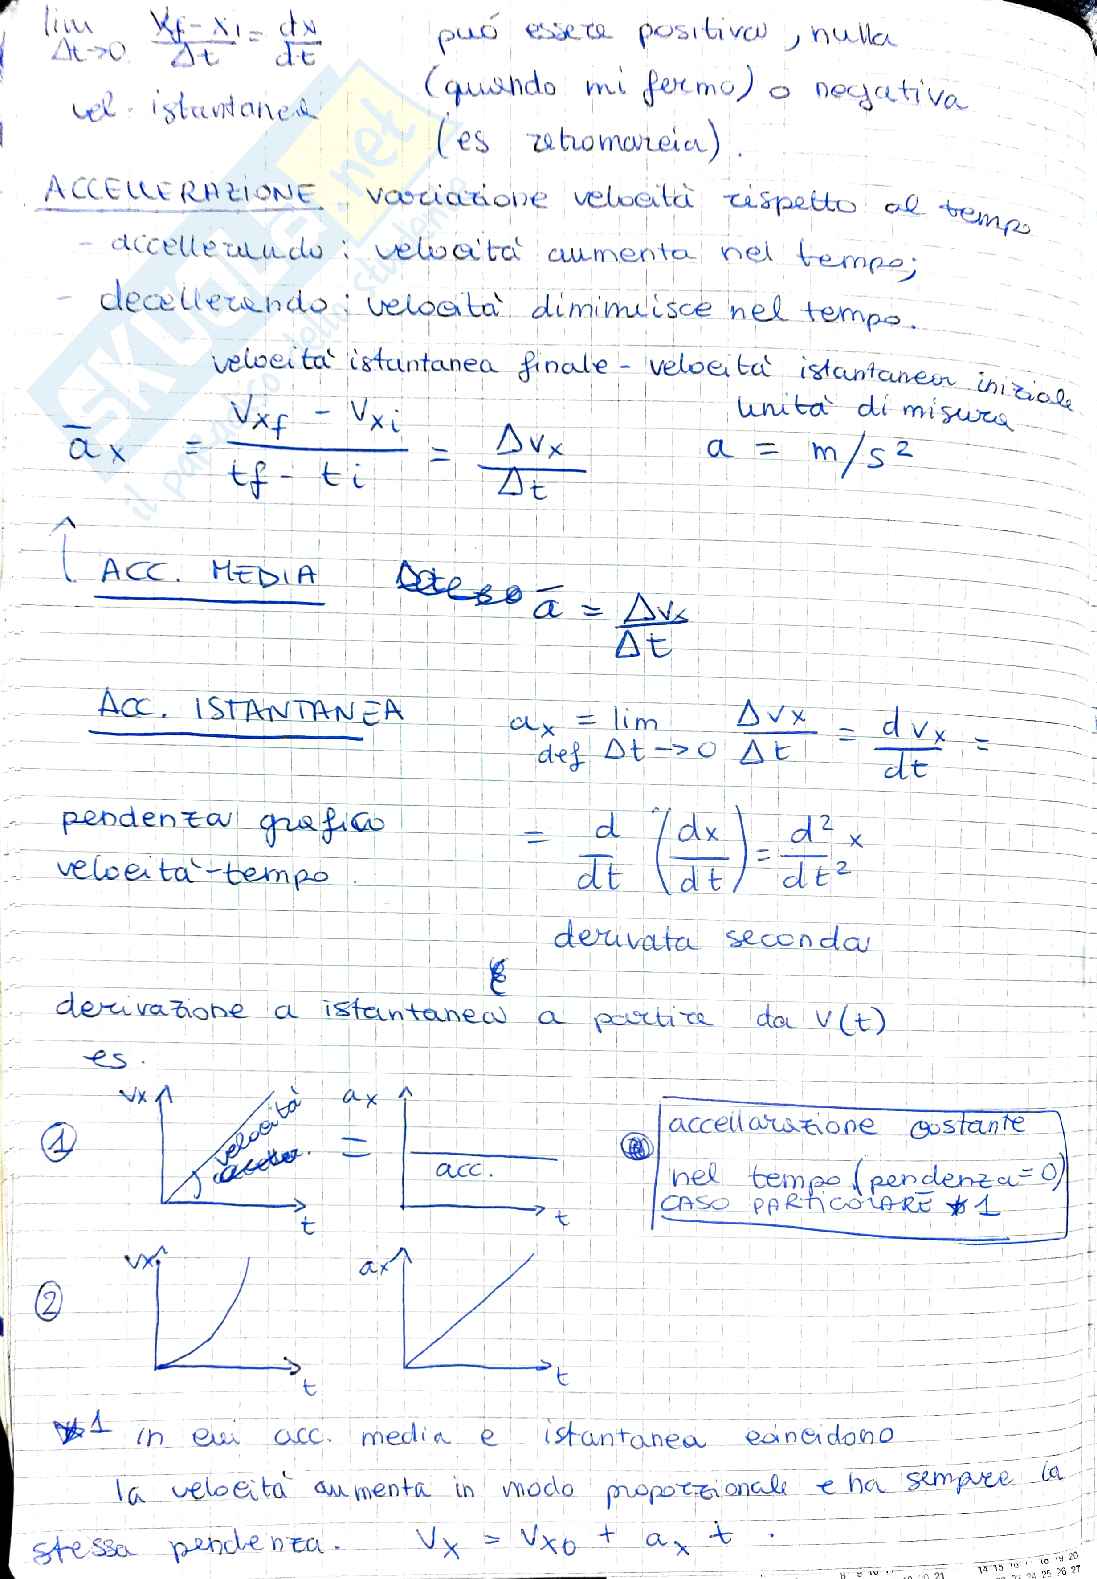 lim Δt→0 xf-xi/Δt = dx/dt
vel. istantanea
può essere positiva, nulla
(quando mi fermo) o negativa
(es retromarcia).
ACCELLERAZIONE variazione velocità rispetto al tempo
- accellerando: velocità aumenta nel tempo;
- decellerando: velocità dimimuisce nel tempo.
velocità istantanea finale - velocità istantanea iniziale
āx = Vxf - Vxi / tf - ti = ΔVx/Δt
unità di misura
a = m/s²
ACC. MEDIA ā = ΔVx/Δt
ACC. ISTANTANEA ax = def lim Δt→0 ΔVx/Δt = dVx/dt =
pendenza grafico
velocità-tempo.
= d/dt (dx/dt) = d²/dt² x
derivata seconda
derivazione a istantanea a partire da V(t)
es.
① Vx velocità t = ax acc. t
accellarazione costante
nel tempo (pendenza=0)
CASO PARTICOLARE *1
② Vx t ax t
*1 in cui acc. media e istantanea coincidono
la velocità aumenta in modo proporzionale e ha sempre la
stessa pendenza. Vx = Vx0 + ax t.
SKUOLA.net